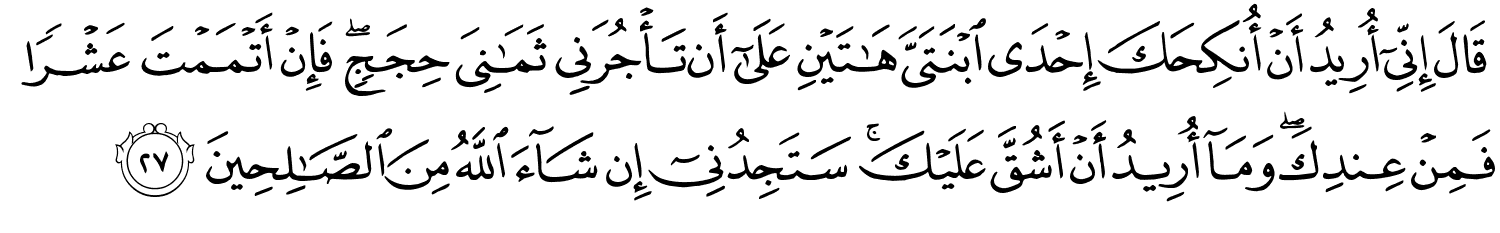 قَالَ إِنِّيٓ أُرِيدُ أَنۡ أُنكِحَكَ إِحۡدَى ٱبۡنَتَيَّ هَٰتَيۡنِ عَلَىٰٓ أَن تَأۡجُرَنِي ثَمَٰنِيَ حِجَجٖۖ فَإِنۡ أَتۡمَمۡتَ عَشۡرٗا
فَمِنۡ عِندِكَۖ وَمَآ أُرِيدُ أَنۡ أَشُقَّ عَلَيۡكَۚ سَتَجِدُنِيٓ إِن شَآءَ ٱللَّهُ مِنَ ٱلصَّٰلِحِينَ ٢٧